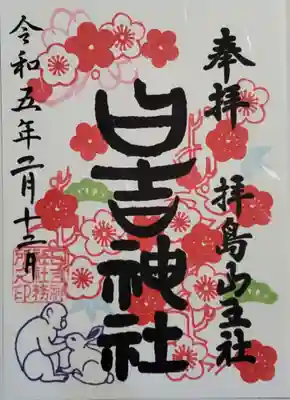 奉拝
拝島山王社
日吉神社
令和五年二月十二日